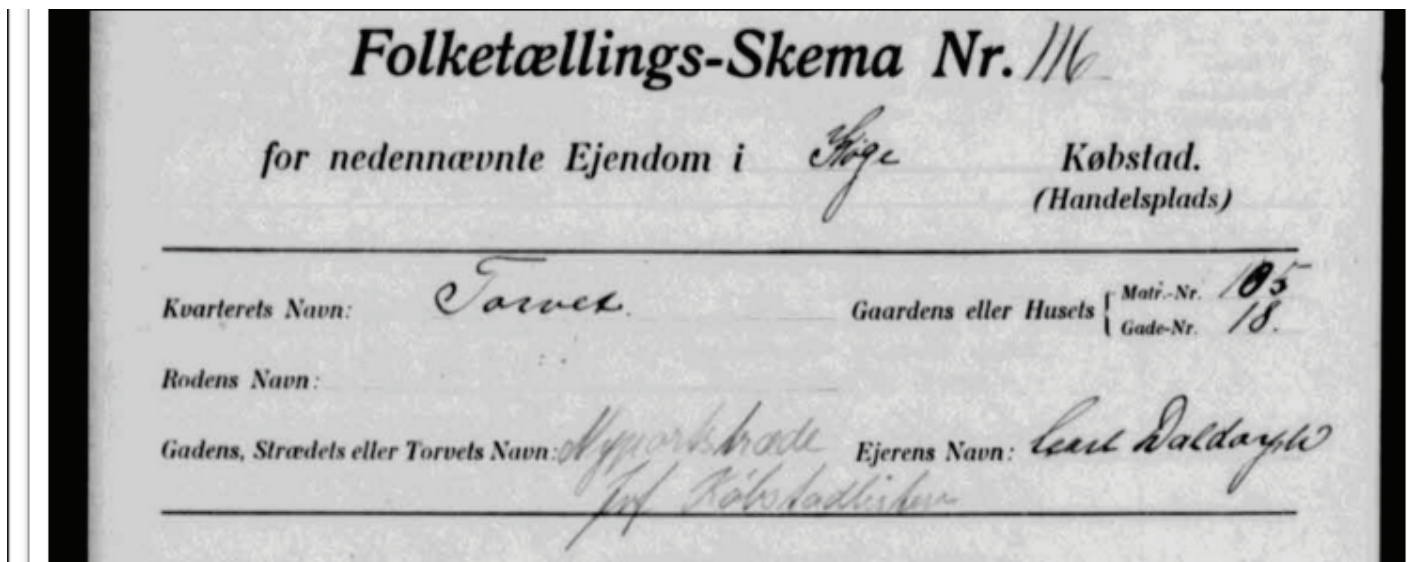 Folketællings-Skema Nr. 116
for nedennævnte Ejendom i Køge Købstad.
(Handelsplads)
Kvarterets Navn: Torvet. Gaardens eller Husets { Matr.-Nr. 105
Gade-Nr. 18.
Rodens Navn:
Gadens, Strædets eller Torvets Navn: Nyportstræde Ejerens Navn: Carl
Købstadlisten